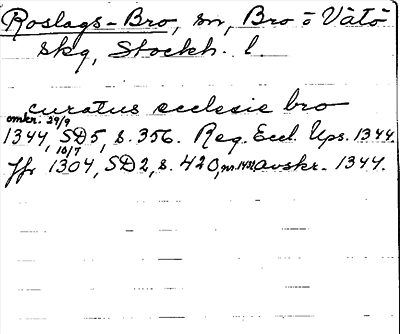 Roslags-Bro, sn, Bro o Vätö
skg, Stockh. l.
curatus ecclesie bro
omkr. 29/9
1344, SD5, s. 356. Reg. Eccl. Ups. 1344.
10/7
Jfr 1304, SD2, s. 420, avskr. 1344.